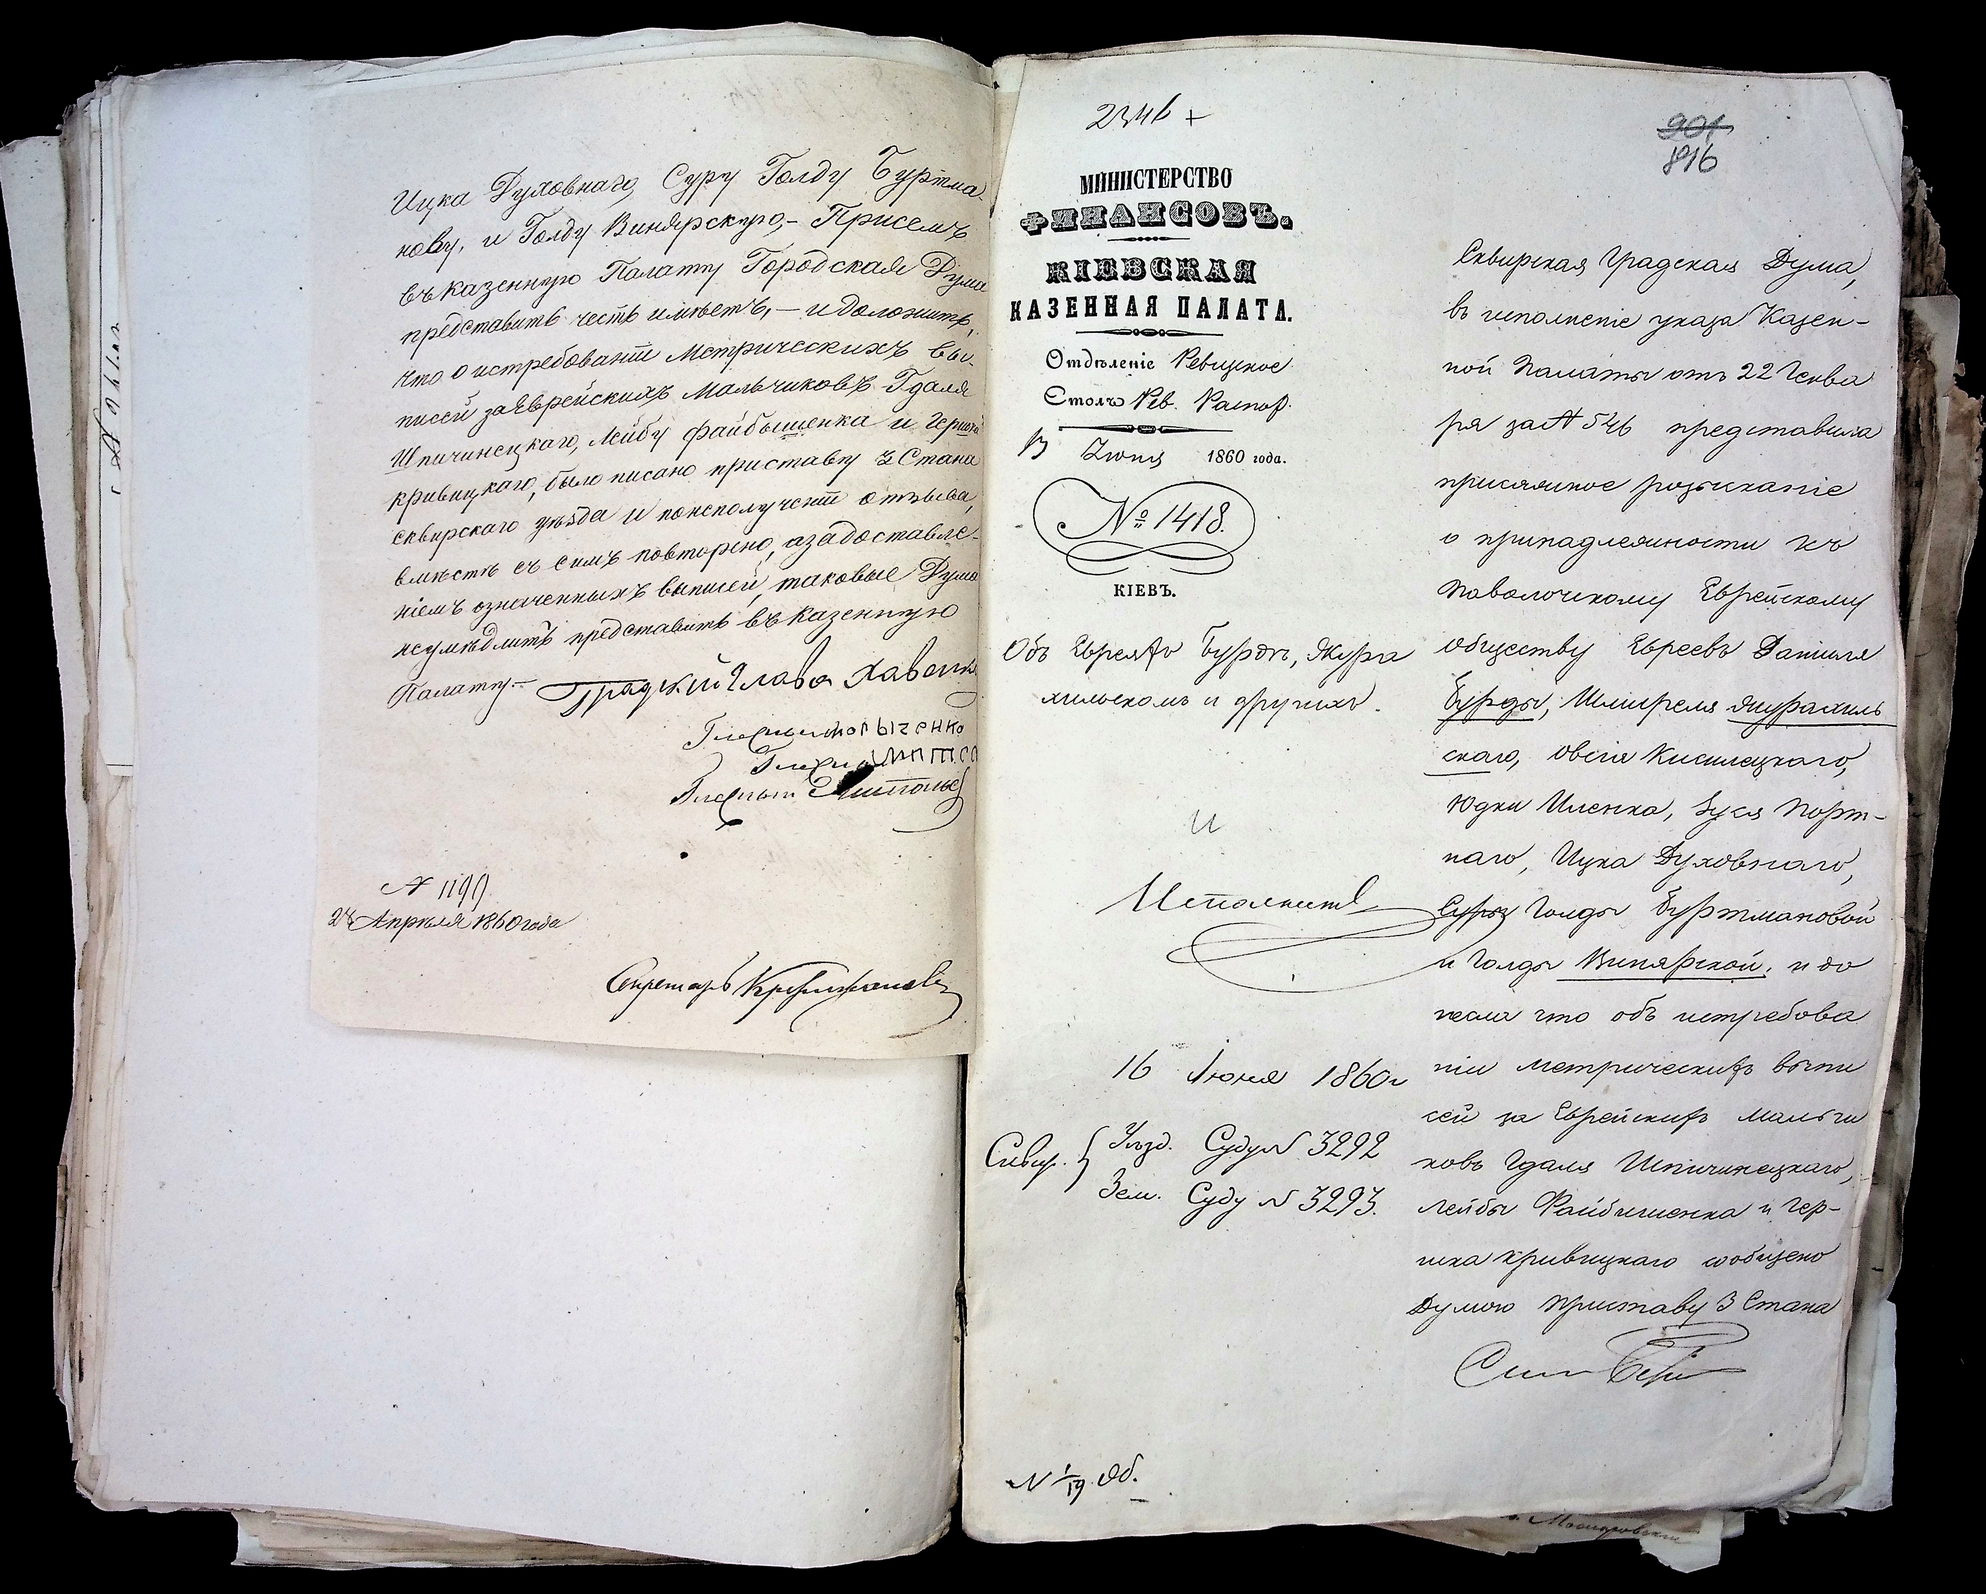 Ицка Духовнаго, Суру Голду Буртма-
нову, и Голду Винярскую,- При семъ
въ Казенную Палату Городская Дума
представить честь имѣетъ,- и доложить,
что о истребованіи Метрическихъ вы-
писей за Еврейскихъ Мальчиковъ Гдаля
Шпичинецкаго, Лейбу Файбышенка и Гершка
Кривицкаго, было писано приставу 3 Стана
сквирскаго уѣзда и понеполученіи отзыва,
вмѣстѣ съ симъ повторено, а за доставле-
ніемъ означенныхъ выписей, таковые Дума
неумѣдлитъ представить въ Казенную
Палату.-
Градскій Глава
Гласный
Гласный
Гласный
№ 1199
28 Апрѣля 1860 года
Секретарь
2346 +
901
816
МИНИСТЕРСТВО
ФИНАНСОВЪ.
КІЕВСКАЯ
КАЗЕННАЯ ПАЛАТА.
Отдѣленіе Ревизское
Столъ Рев. Распор.
13 Іюня 1860 года.
№ 1418.
КІЕВЪ.
Объ Евреяхъ Бурдѣ, Жура
хильскомъ и другихъ.
и
Исполнить
16 Іюня 1860 г
Сквир. { Уѣзд. Суду № 3292
Зем. Суду № 3293.
Сквирская Градская Дума,
въ исполненіе указа Казен-
ной Палаты отъ 22 Генва
ря за № 546 представила
присяжное розысканіе
о принадлежности къ
Паволочскому Еврейскому
обществу Евреевъ Даніиля
Бурды, Шмиреля Журахиль
скаго, Овсія Кисилецкаго,
Юдки Иленка, Зуся Порт-
наго, Ицка Духовнаго,
Суры Голды Буртмановой
и Голды Винярской, и до
несла что объ истребова
ніи метрическихъ выпи
сей за Еврейскихъ мальчи
ковъ Гдаля Шпичинецкаго,
Лейбы Файбишенка и Гер-
шка Кривицкаго сообщено
Думою Приставу 3 Стана
№ 1/19 Об.